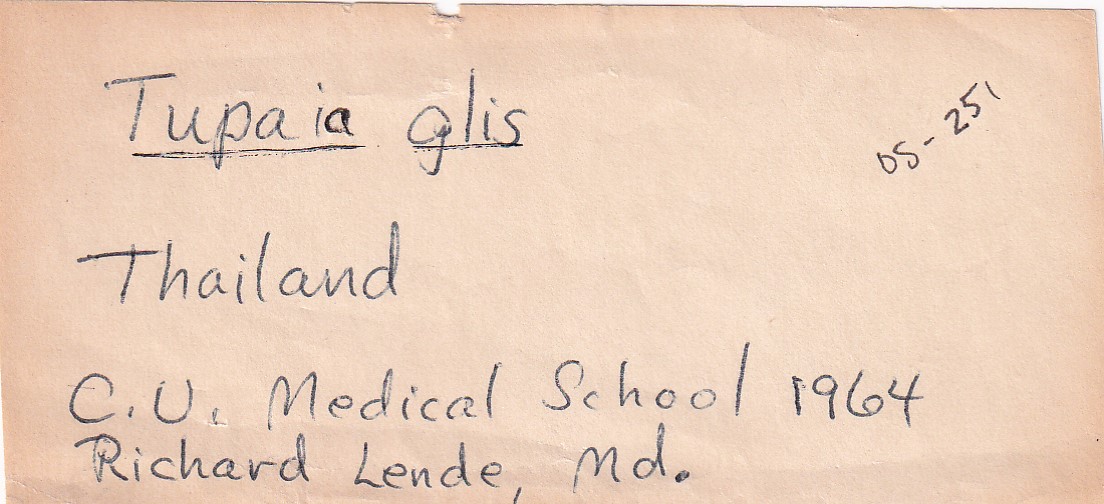 Tupaia glis
05-251
Thailand
C.U. Medical School 1964
Richard Lende, Md.